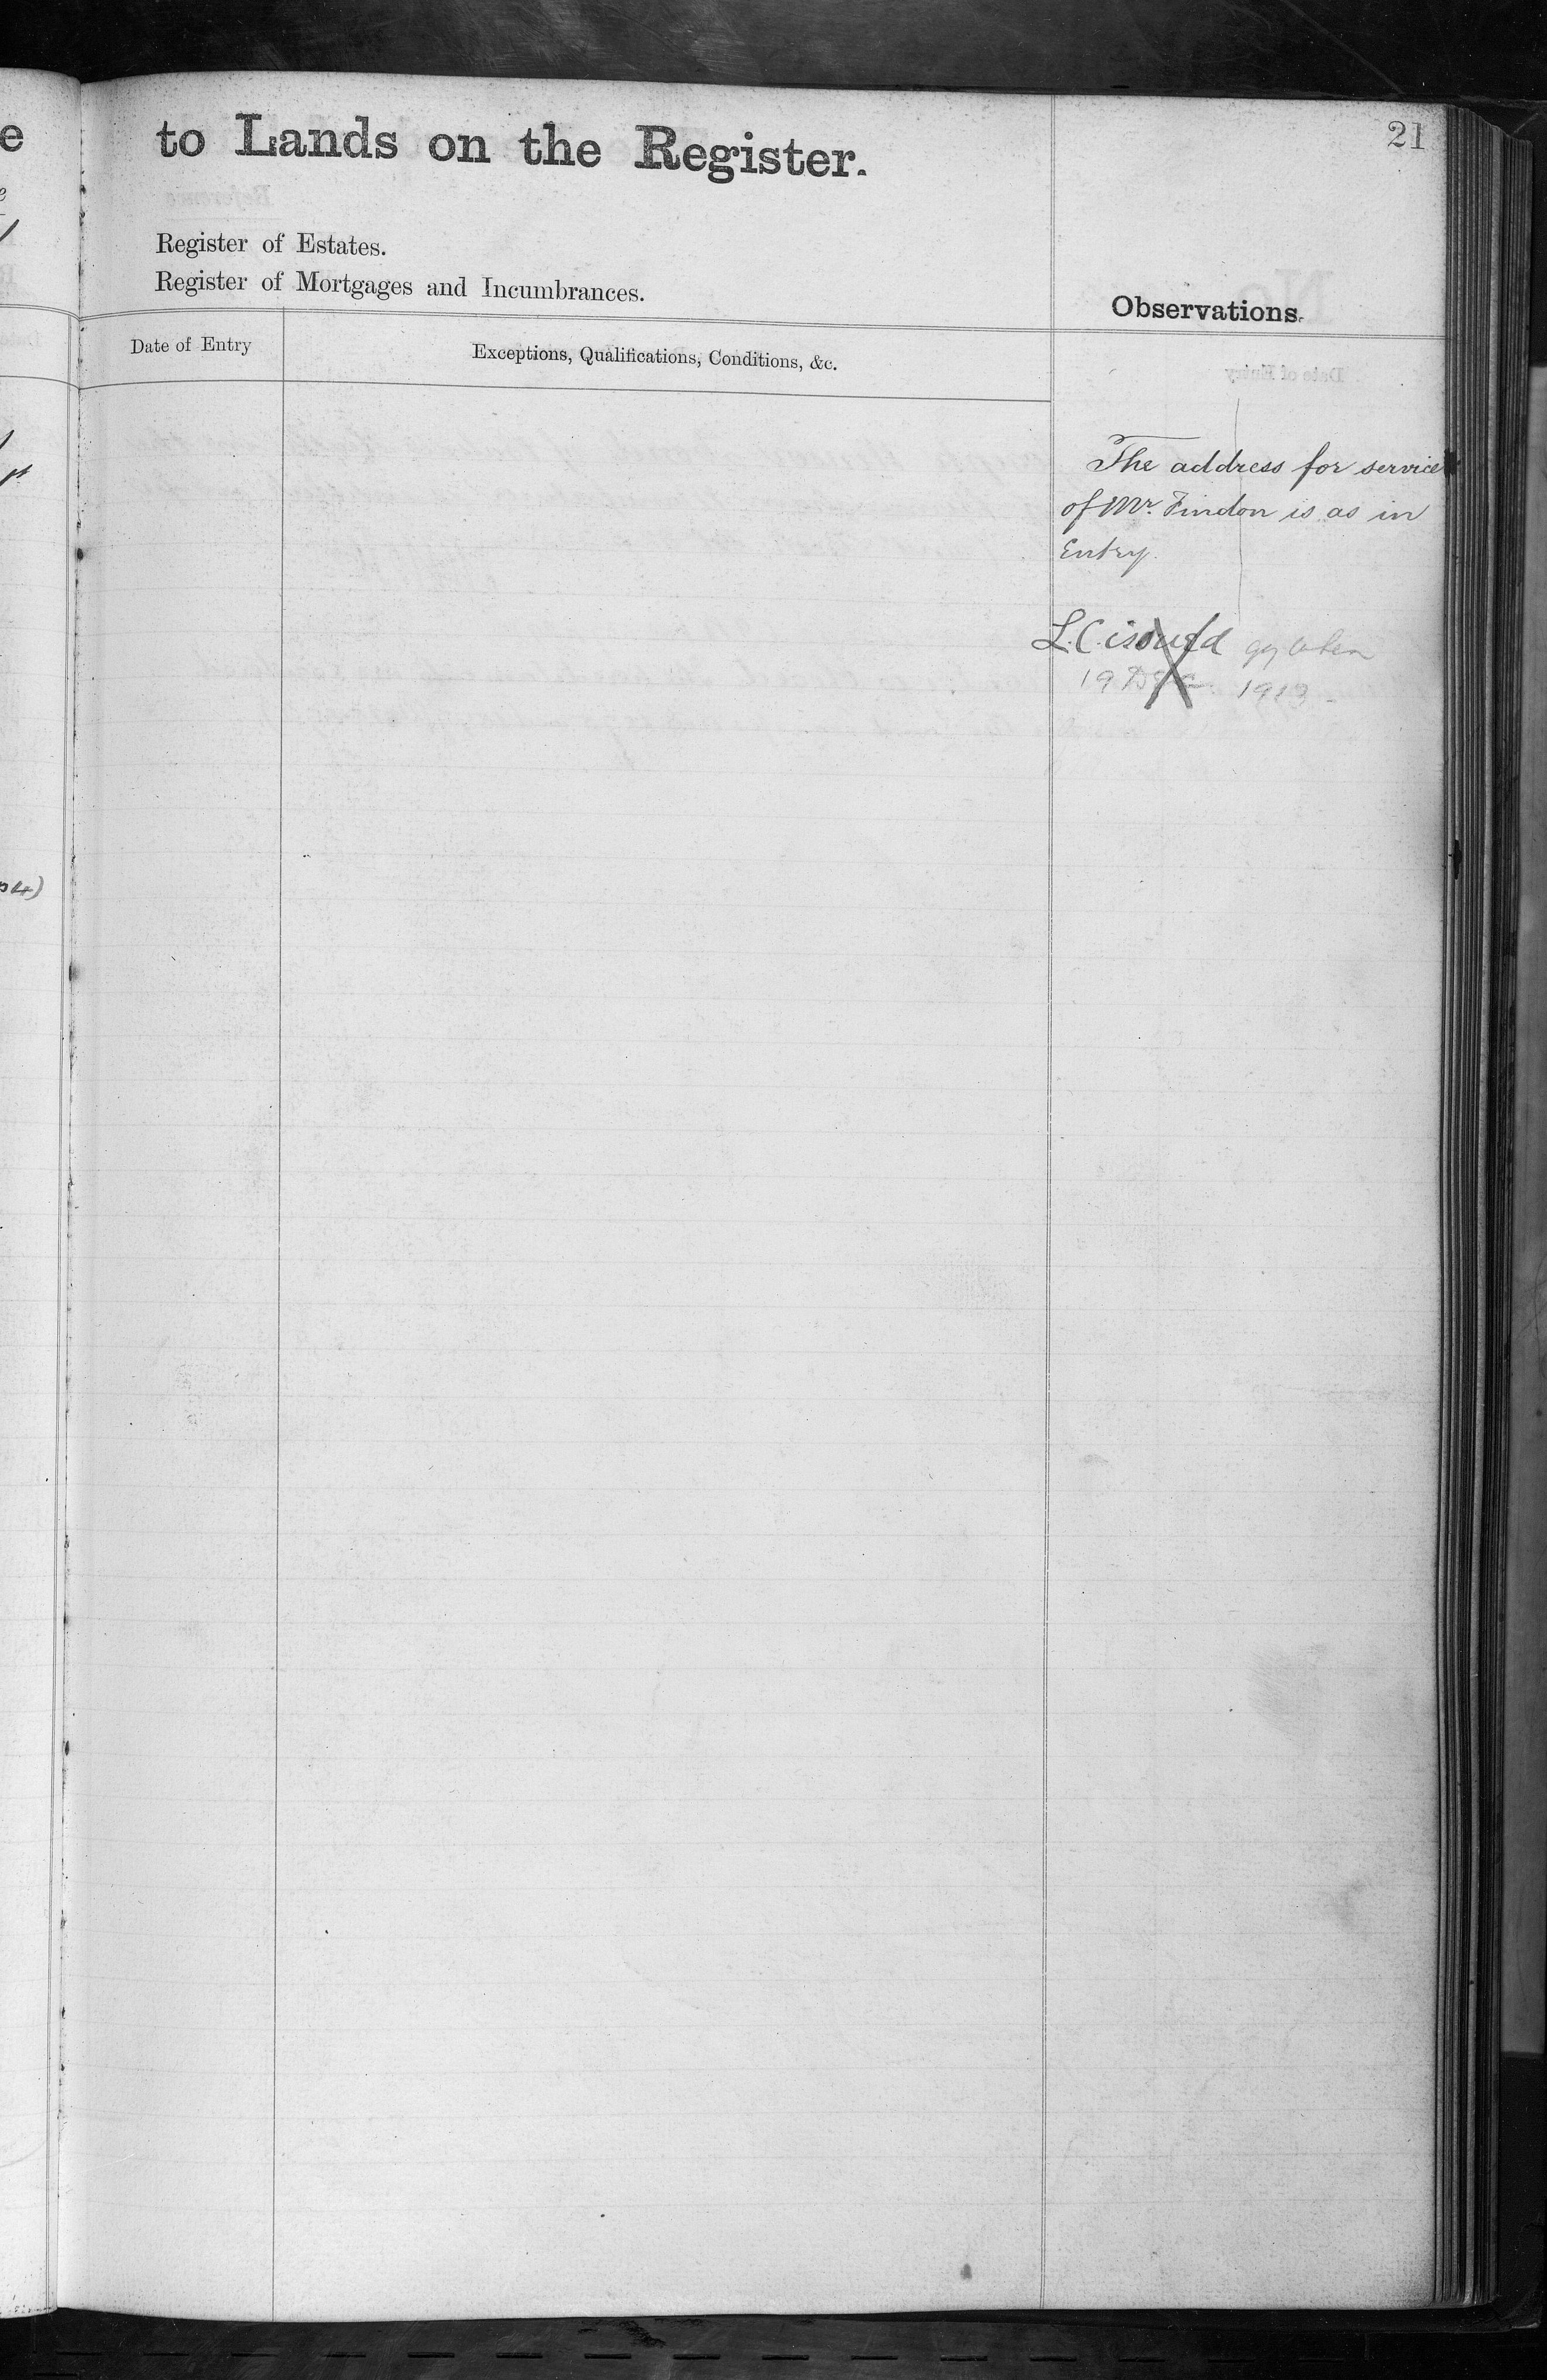 to Lands on the Register.
21
Register of Estates.
Register of Mortgages and Incumbrances.
Observations.
Date of Entry
Exceptions, Qualifications, Conditions, &c.
The address for service
of Mr. Findon is as in
Entry.
L.C. issued
19 Dec. 1913 -
04)